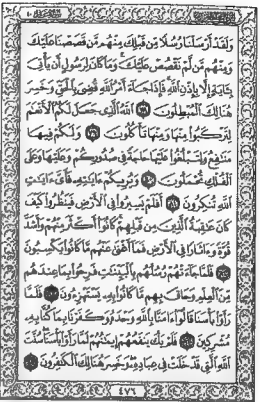 وَلَقَدْ أَرْسَلْنَا رُسُلًا مِّن قَبْلِكَ مِنْهُم مَّن قَصَصْنَا عَلَيْكَ
وَمِنْهُم مَّن لَّمْ نَقْصُصْ عَلَيْكَ وَمَا كَانَ لِرَسُولٍ أَن يَأْتِيَ
بِـَٔايَةٍ إِلَّا بِإِذْنِ ٱللَّهِ فَإِذَا جَآءَ أَمْرُ ٱللَّهِ قُضِيَ بِٱلْحَقِّ وَخَسِرَ
هُنَالِكَ ٱلْمُبْطِلُونَ ٧٨ ٱللَّهُ ٱلَّذِي جَعَلَ لَكُمُ ٱلْأَنْعَٰمَ
لِتَرْكَبُوا۟ مِنْهَا وَمِنْهَا تَأْكُلُونَ ٧٩ وَلَكُمْ فِيهَا
مَنَٰفِعُ وَلِتَبْلُغُوا۟ عَلَيْهَا حَاجَةً فِي صُدُورِكُمْ وَعَلَيْهَا وَعَلَى
ٱلْفُلْكِ تُحْمَلُونَ ٨٠ وَيُرِيكُمْ ءَايَٰتِهِۦ فَأَيَّ ءَايَٰتِ
ٱللَّهِ تُنكِرُونَ ٨١ أَفَلَمْ يَسِيرُوا۟ فِي ٱلْأَرْضِ فَيَنظُرُوا۟ كَيْفَ
كَانَ عَٰقِبَةُ ٱلَّذِينَ مِن قَبْلِهِمْ كَانُوٓا۟ أَكْثَرَ مِنْهُمْ وَأَشَدَّ
قُوَّةً وَءَاثَارًا فِي ٱلْأَرْضِ فَمَآ أَغْنَىٰ عَنْهُم مَّا كَانُوا۟ يَكْسِبُونَ
٨٢ فَلَمَّا جَآءَتْهُمْ رُسُلُهُم بِٱلْبَيِّنَٰتِ فَرِحُوا۟ بِمَا عِندَهُم
مِّنَ ٱلْعِلْمِ وَحَاقَ بِهِم مَّا كَانُوا۟ بِهِۦ يَسْتَهْزِءُونَ ٨٣ فَلَمَّا
رَأَوْا۟ بَأْسَنَا قَالُوٓا۟ ءَامَنَّا بِٱللَّهِ وَحْدَهُۥ وَكَفَرْنَا بِمَا كُنَّا بِهِۦ
مُشْرِكِينَ ٨٤ فَلَمْ يَكُ يَنفَعُهُمْ إِيمَٰنُهُمْ لَمَّا رَأَوْا۟ بَأْسَنَا سُنَّتَ
ٱللَّهِ ٱلَّتِي قَدْ خَلَتْ فِي عِبَادِهِۦ وَخَسِرَ هُنَالِكَ ٱلْكَٰفِرُونَ ٨٥
٤٧٦